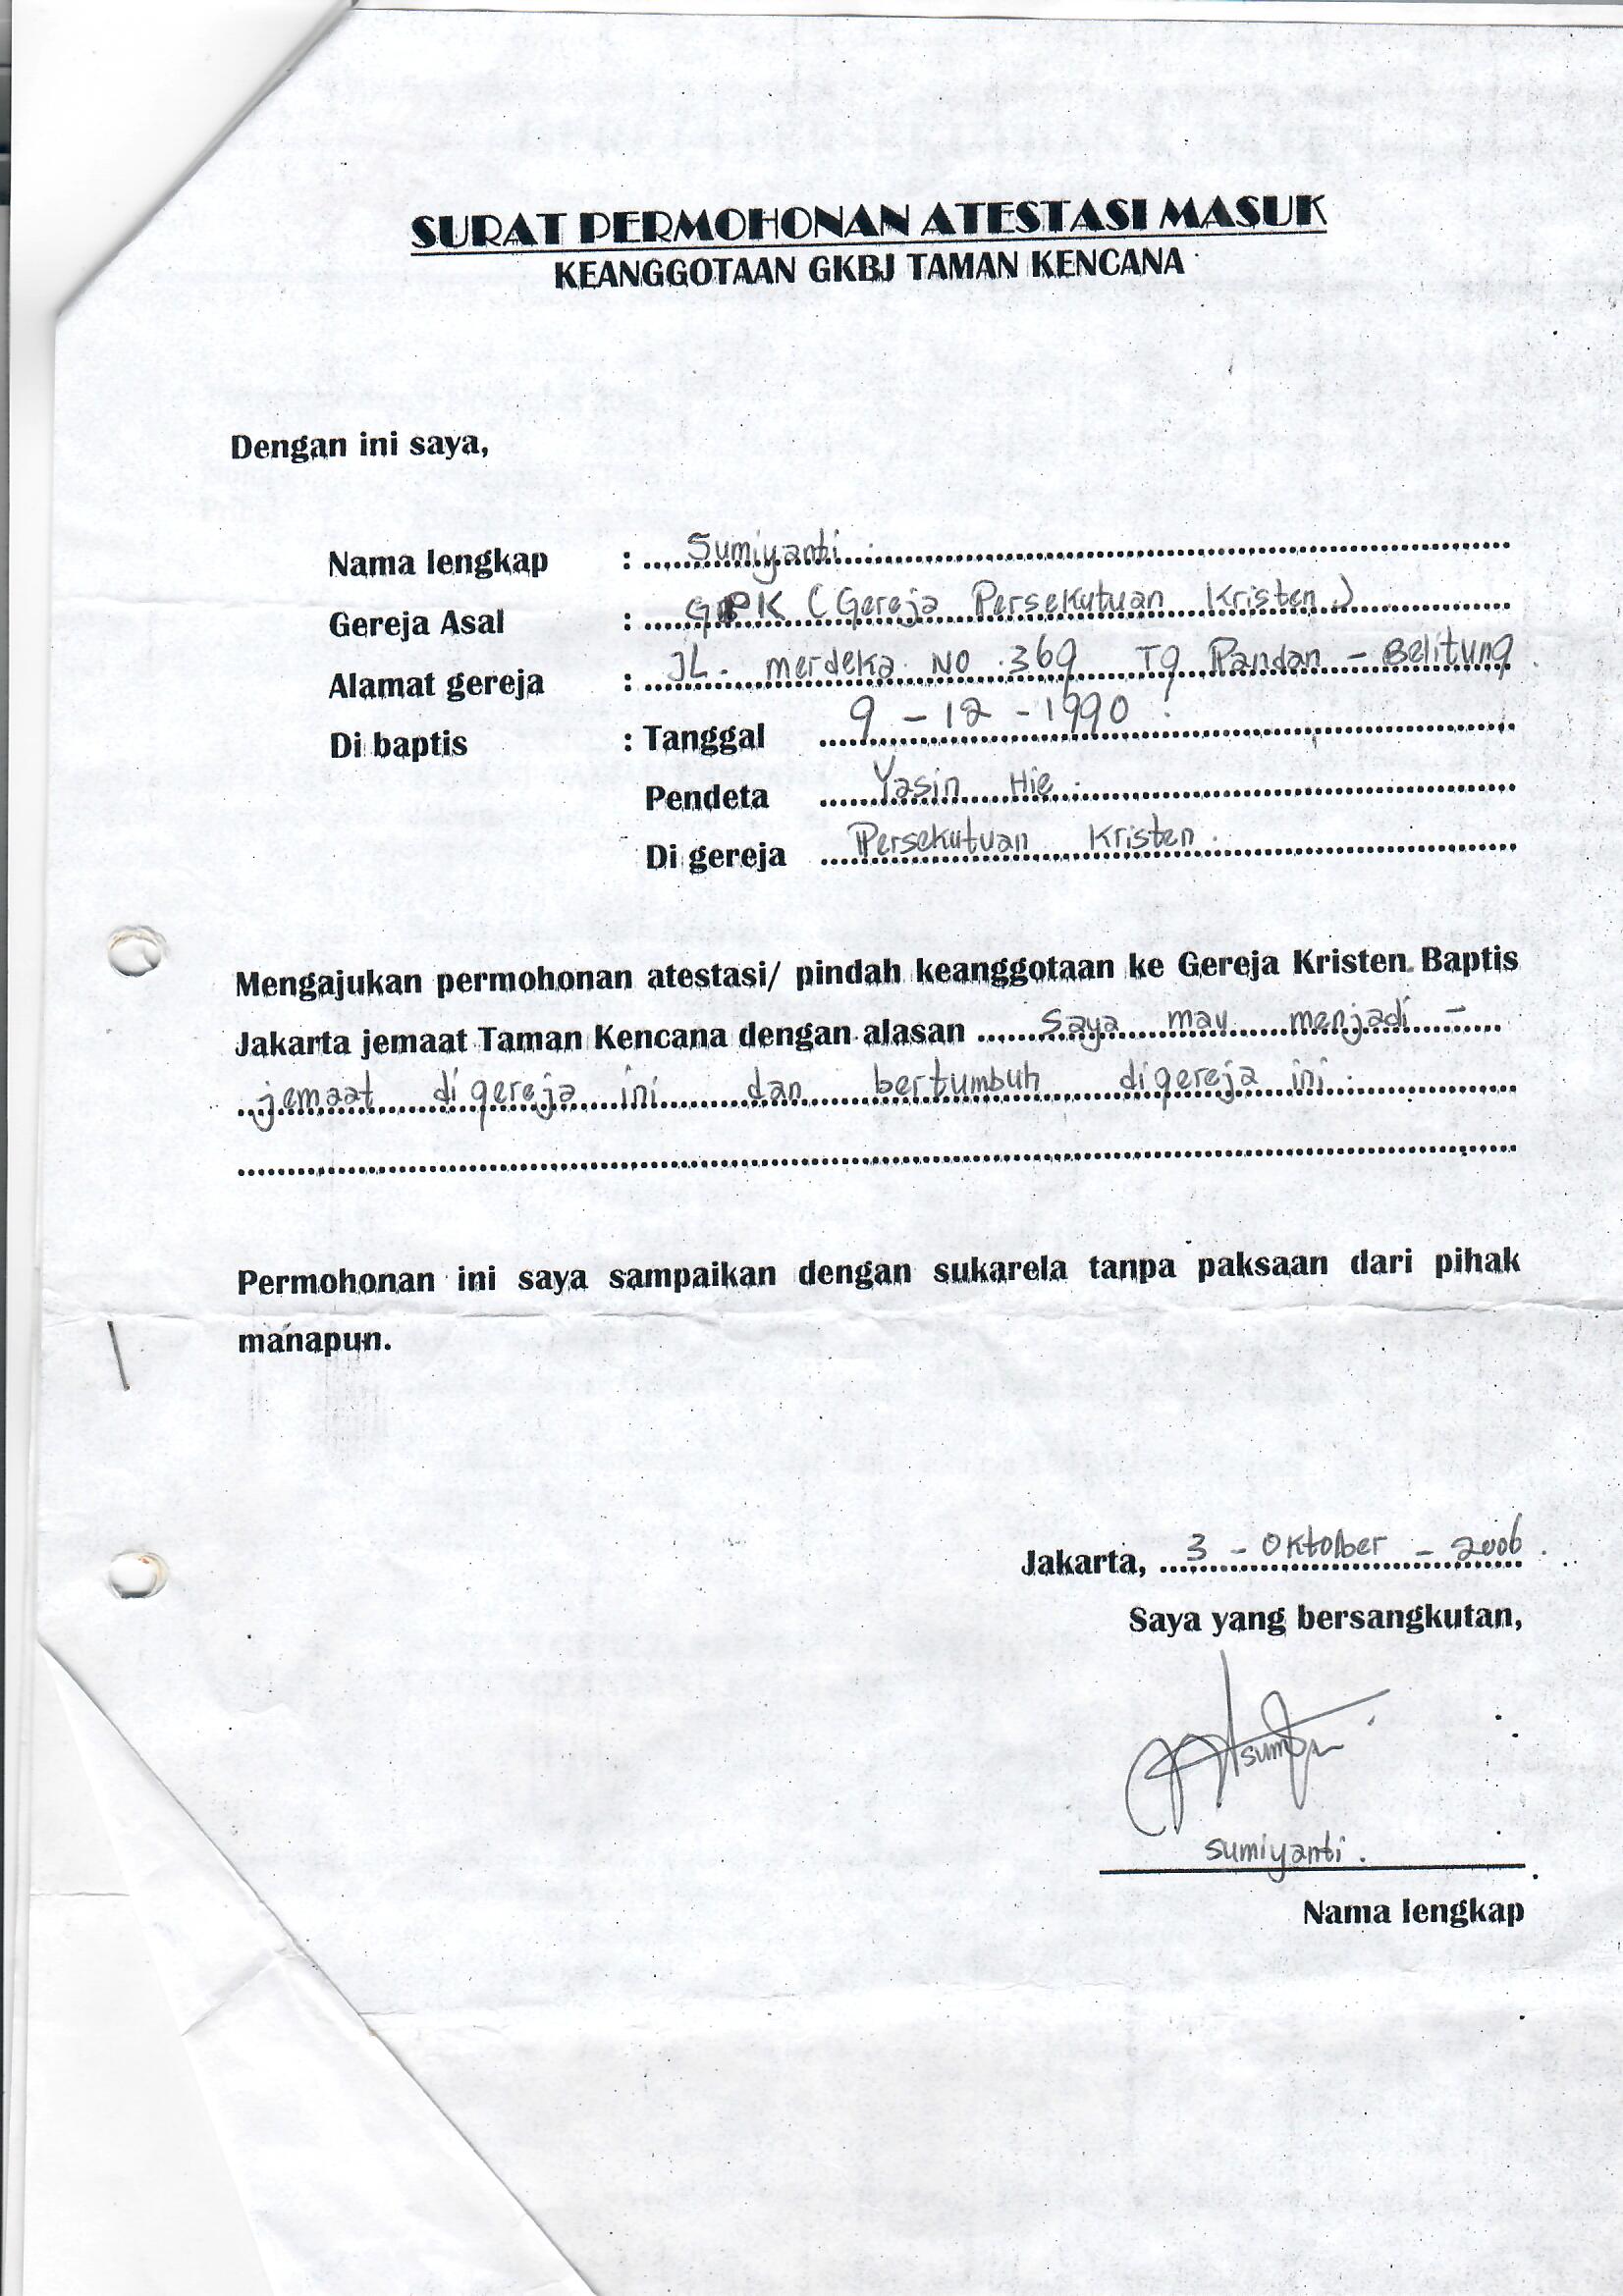 SURAT PERMOHONAN ATESTASI MASUK
KEANGGOTAAN GKBJ TAMAN KENCANA
Dengan ini saya,
Nama lengkap : Sumiyanti.
Gereja Asal : GPK (Gereja Persekutuan Kristen)
Alamat gereja : JL. merdeka No. 369 Tg Pandan - Belitung.
Di baptis : Tanggal 9 - 12 - 1990.
Pendeta Yasin Hie.
Di gereja Persekutuan Kristen.
Mengajukan permohonan atestasi/ pindah keanggotaan ke Gereja Kristen Baptis
Jakarta jemaat Taman Kencana dengan alasan Saya mau menjadi -
jemaat digereja ini dan bertumbuh digereja ini.
Permohonan ini saya sampaikan dengan sukarela tanpa paksaan dari pihak
manapun.
Jakarta, 3 - Oktober - 2006.
Saya yang bersangkutan,
sumiyanti.
Nama lengkap